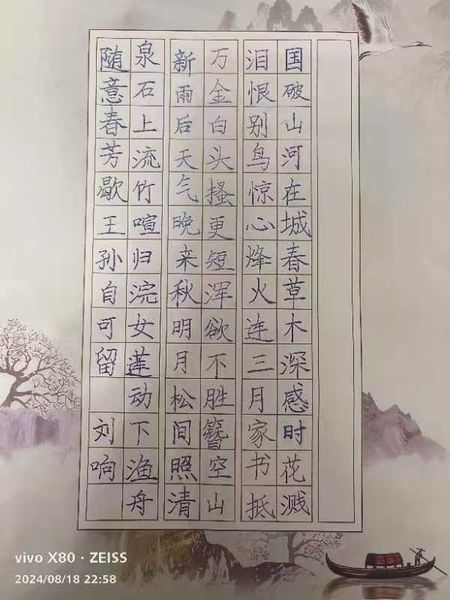 国破山河在城春草木深感时花溅
泪恨别鸟惊心烽火连三月家书抵
万金白头搔更短浑欲不胜簪空山
新雨后天气晚来秋明月松间照清
泉石上流竹喧归浣女莲动下渔舟
随意春芳歇王孙自可留 刘响
vivo X80 · ZEISS
2024/08/18 22:58